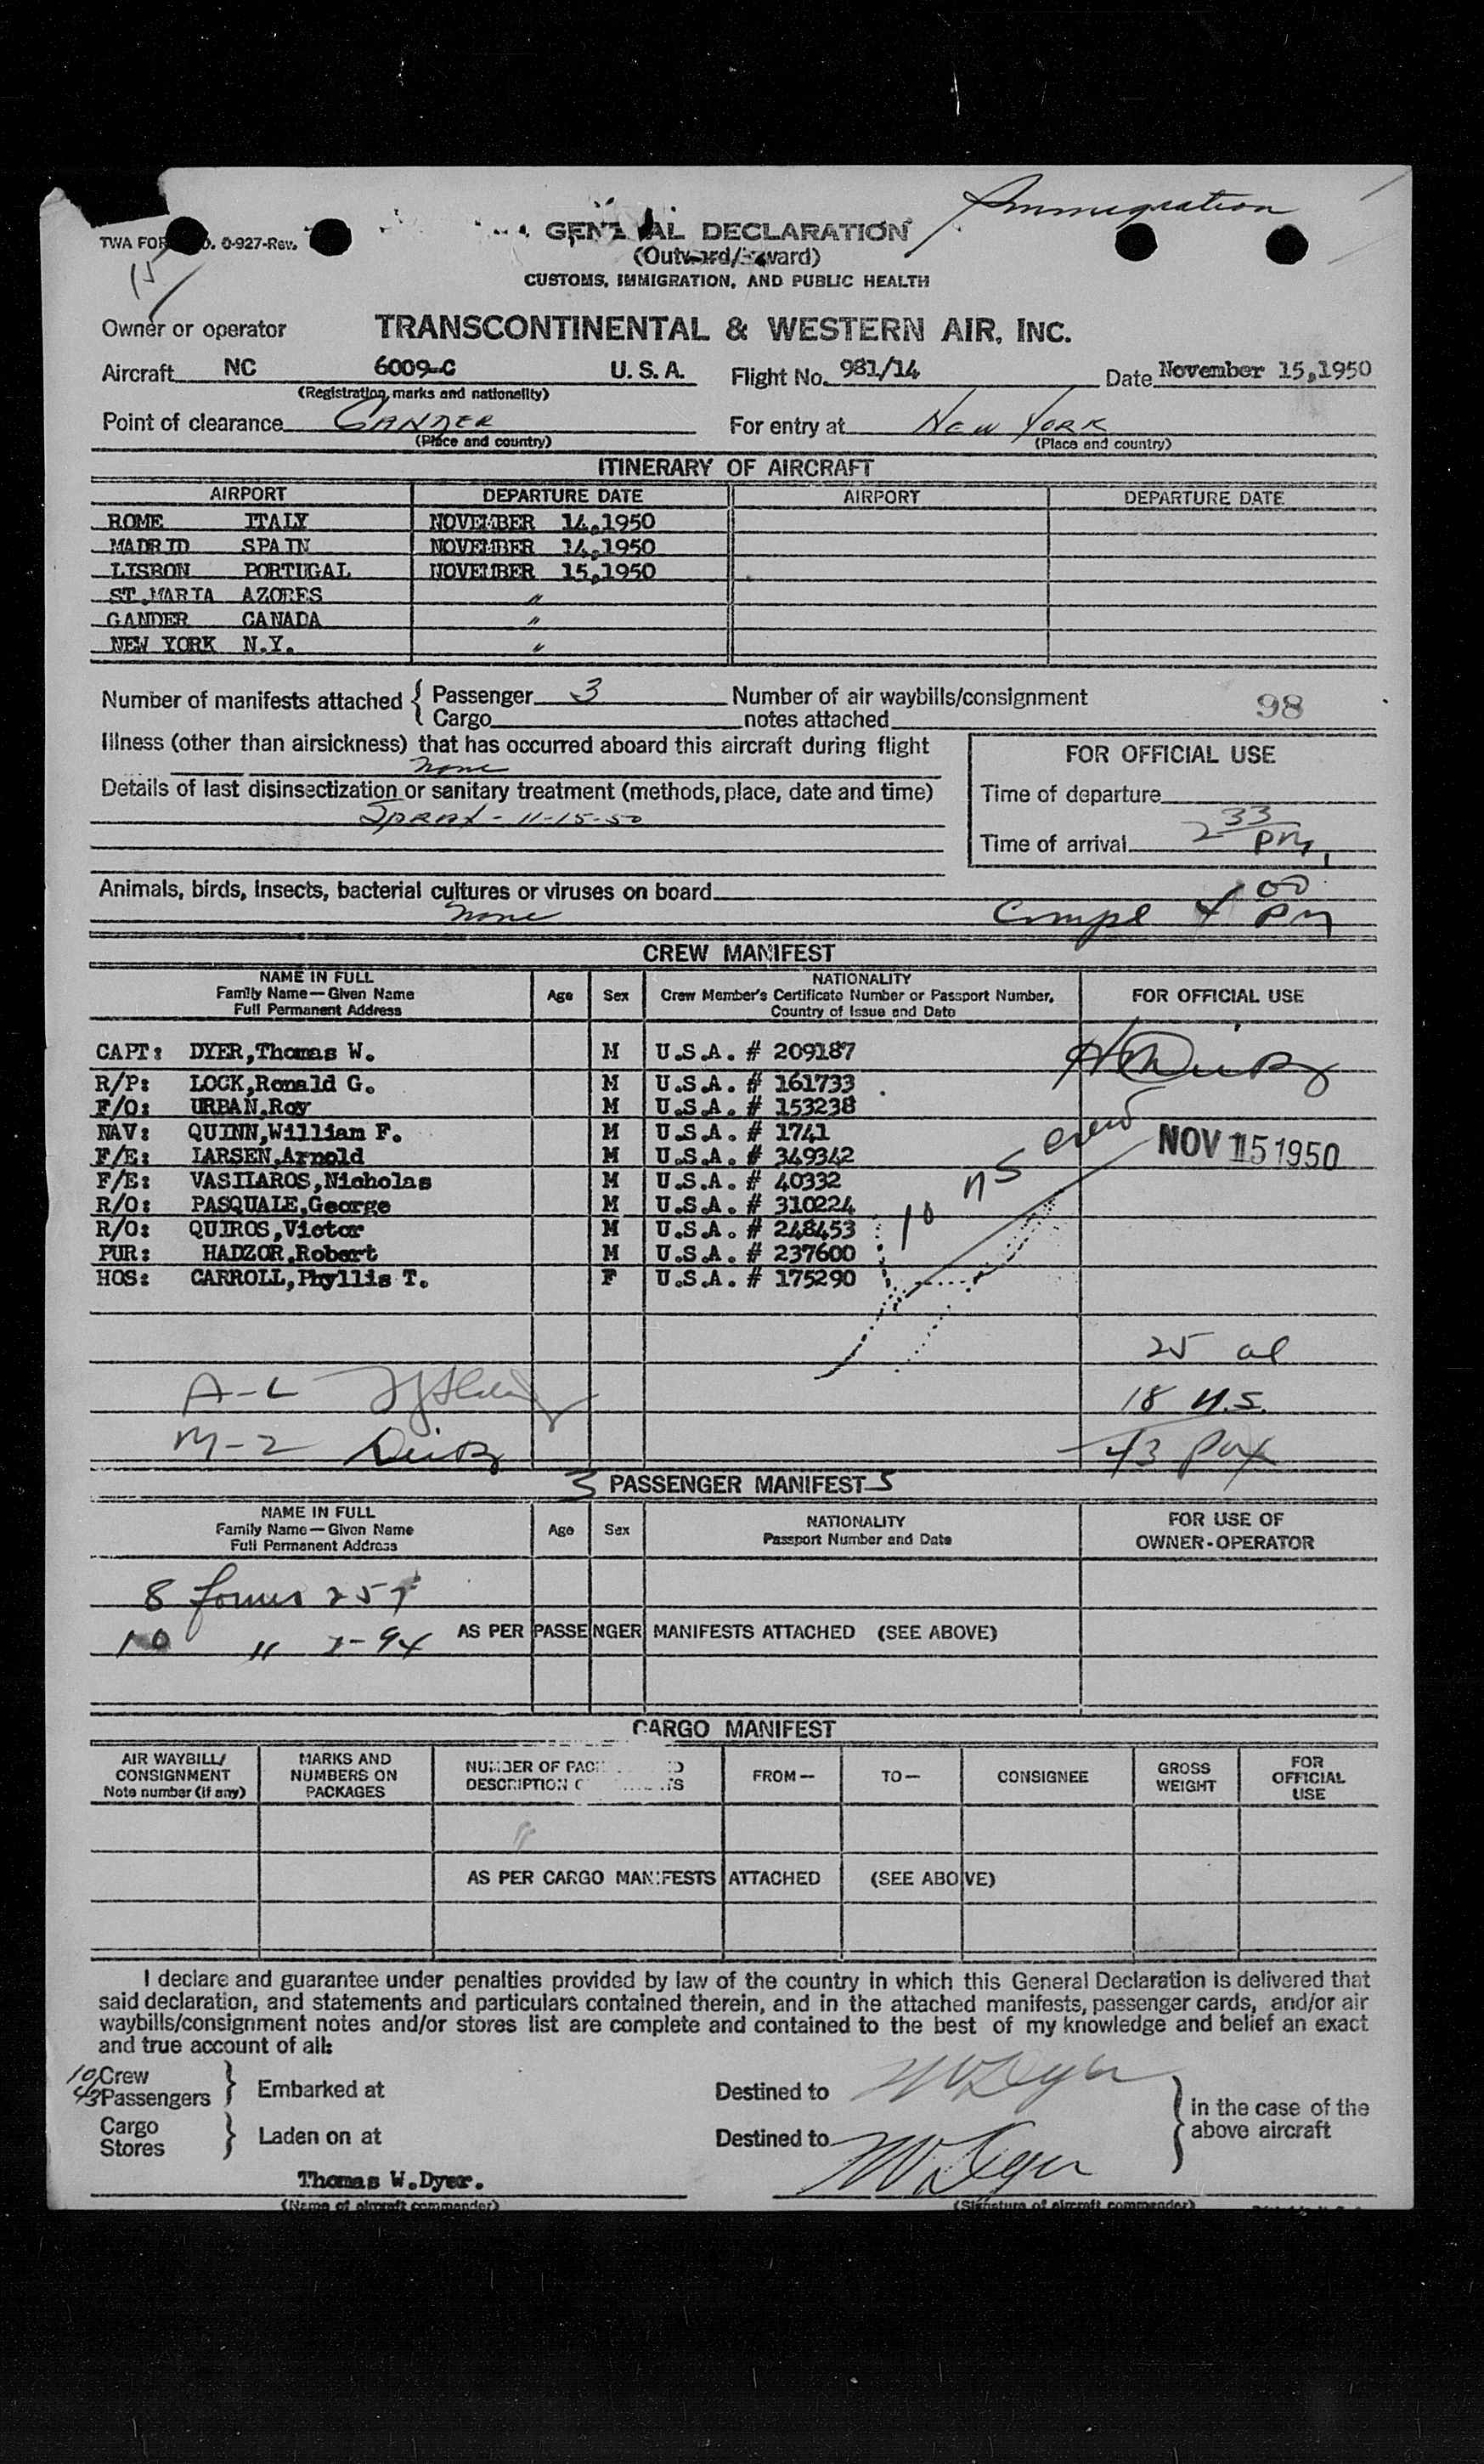 Immigration
TWA FOR O. O-927-Rev.
GENERAL DECLARATION
(Outward/Inward)
15
CUSTOMS, IMMIGRATION, AND PUBLIC HEALTH
Owner or operator TRANSCONTINENTAL & WESTERN AIR, INC.
Aircraft NC 6009-C U.S.A. Flight No. 981/14 Date November 15,1950
(Registration, marks and nationality)
Point of clearance GANDER For entry at NEW YORK
(Place and country) (Place and country)
ITINERARY OF AIRCRAFT
AIRPORT DEPARTURE DATE AIRPORT DEPARTURE DATE
ROME ITALY NOVEMBER 14,1950
MADRID SPAIN NOVEMBER 14,1950
LISBON PORTUGAL NOVEMBER 15,1950
ST.MARIA AZORES "
GANDER CANADA "
NEW YORK N.Y. "
Number of manifests attached { Passenger 3 Number of air waybills/consignment 98
Cargo notes attached
Illness (other than airsickness) that has occurred aboard this aircraft during flight
none
FOR OFFICIAL USE
Details of last disinsectization or sanitary treatment (methods, place, date and time)
SPRAY - 11-15-50
Time of departure
Time of arrival 2 33 PM
Animals, birds, insects, bacterial cultures or viruses on board
none Compl 4 00 PM
CREW MANIFEST
NAME IN FULL
Family Name — Given Name
Full Permanent Address
Age Sex
NATIONALITY
Crew Member's Certificate Number or Passport Number,
Country of Issue and Date
FOR OFFICIAL USE
CAPT: DYER,Thomas W. M U.S.A. # 209187
R/P: LOCK,Ronald G. M U.S.A. # 161733
F/O: URBAN,Roy M U.S.A. # 153238
NAV: QUINN,William F. M U.S.A. # 1741
F/E: LARSEN,Arnold M U.S.A. # 349342
F/E: VASILAROS,Nicholas M U.S.A. # 40332
R/O: PASQUALE,George M U.S.A. # 310224
R/O: QUIROS,Victor M U.S.A. # 248453
PUR: HADZOR,Robert M U.S.A. # 237600
HOS: CARROLL,Phyllis T. F U.S.A. # 175290
10 US crew
NOV 15 1950
25 al
A-L
18 U.S.
M-2
43 pax
3 PASSENGER MANIFEST S
NAME IN FULL
Family Name — Given Name
Full Permanent Address
Age Sex
NATIONALITY
Passport Number and Date
FOR USE OF
OWNER-OPERATOR
8 forms 257
10 " 2-94 AS PER PASSENGER MANIFESTS ATTACHED (SEE ABOVE)
CARGO MANIFEST
AIR WAYBILL/
CONSIGNMENT
Note number (if any)
MARKS AND
NUMBERS ON
PACKAGES
NUMBER OF
DESCRIPTION
FROM —
TO —
CONSIGNEE
GROSS
WEIGHT
FOR
OFFICIAL
USE
AS PER CARGO MANIFESTS ATTACHED (SEE ABOVE)
I declare and guarantee under penalties provided by law of the country in which this General Declaration is delivered that
said declaration, and statements and particulars contained therein, and in the attached manifests, passenger cards, and/or air
waybills/consignment notes and/or stores list are complete and contained to the best of my knowledge and belief an exact
and true account of all:
10 Crew
43 Passengers } Embarked at Destined to TWDyer
Cargo
Stores } Laden on at Destined to
} in the case of the
above aircraft
Thomas W.Dyer. TWDyer
(Name of aircraft commander) (Signature of aircraft commander)